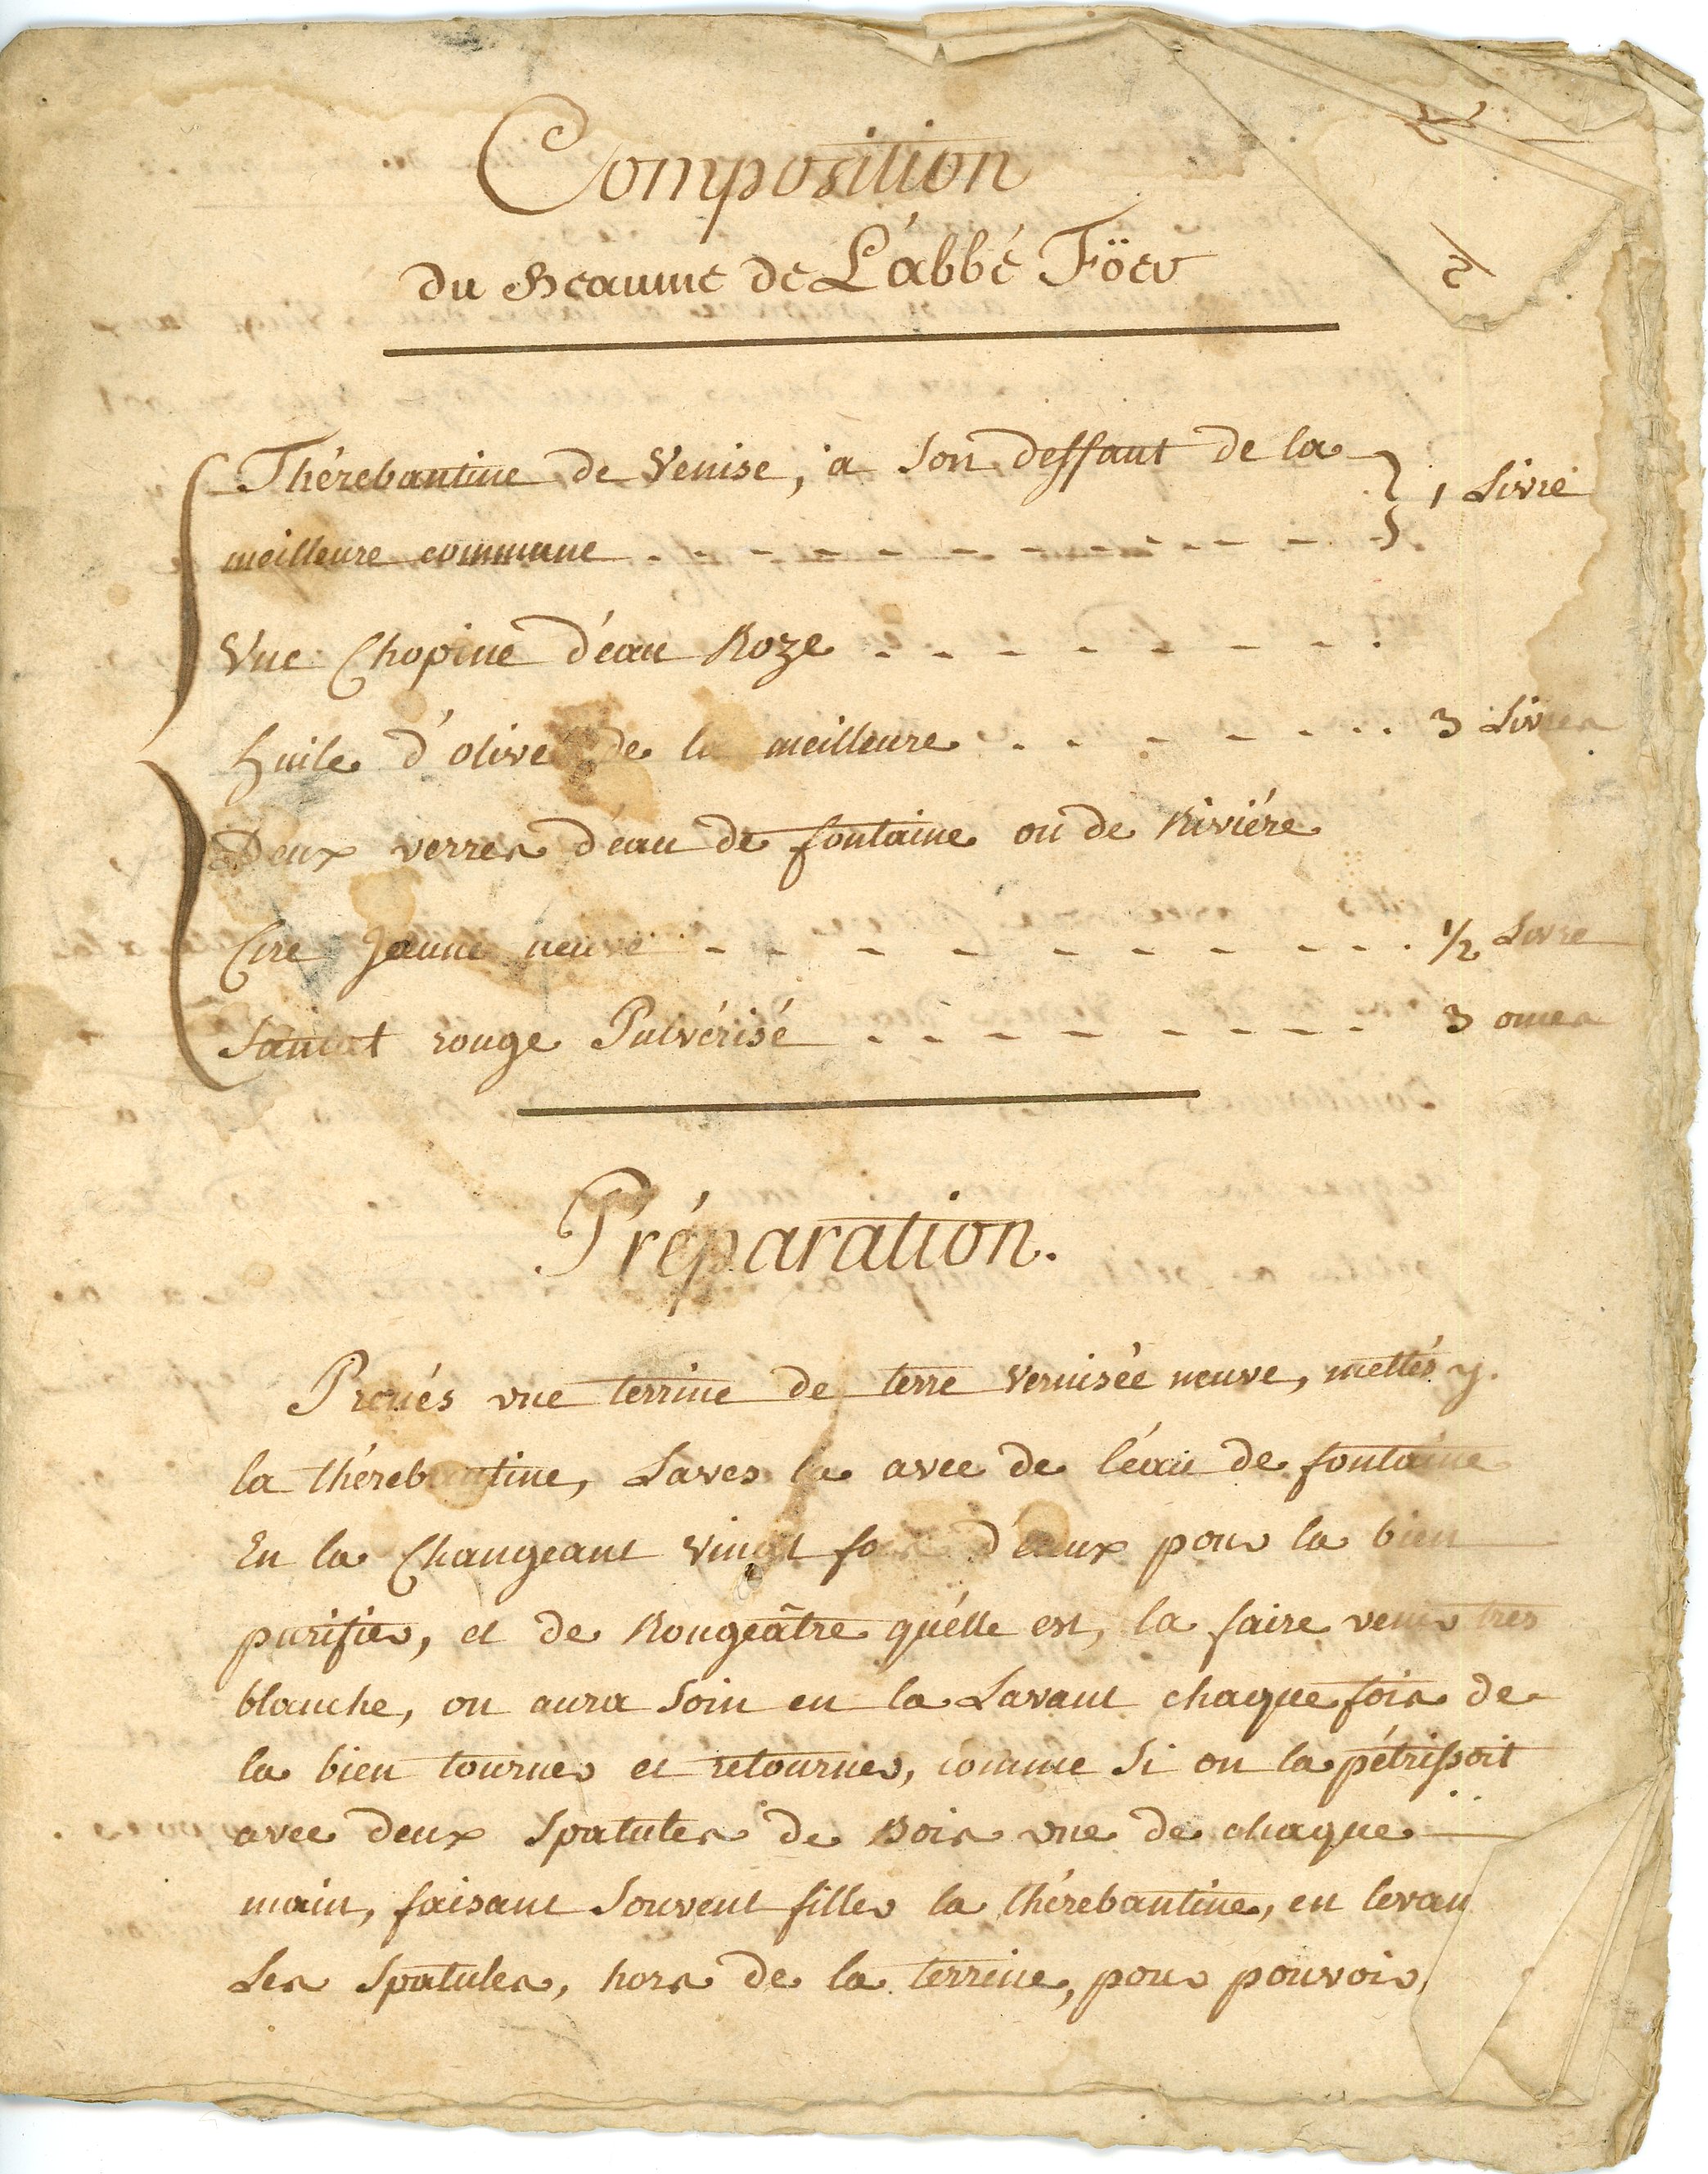 Composition
du Beaume de L'abbé Föer
Thérebantine de Venise, a son deffaut de la
meilleure commune . - - - - - - - - - - - 1 Livre
Vne Chopine d'eau Roze . - - - - - - - .
huile d'olive de la meilleure . . - - - - . . . 3 Livres
Deux verres d'eau de fontaine ou de Riviére
Cire Jaune neuve . - - - - - - - - - - . ½ Livre
Santal rouge Pulvérisé . - - - - - - - 3 onces
Préparation.
Prenés vne terrine de terre vernisée neuve, mettés y.
la thérebantine, Laves la avec de l'éau de fontaine
En la Changeant vingt fois d'eaux pour la bien
purifier, et de Rougeâtre qu'élle est, la faire venir tres
blanche, on aura soin en la Lavant chaque fois de
la bien tourner et retourner, comme si on la pétrissoit
avec deux Spatules de Bois vne de chaque
main, faisant souvent filler la thérebantine, en levan
Les Spatules, hors de la terrine, pour pouvoir